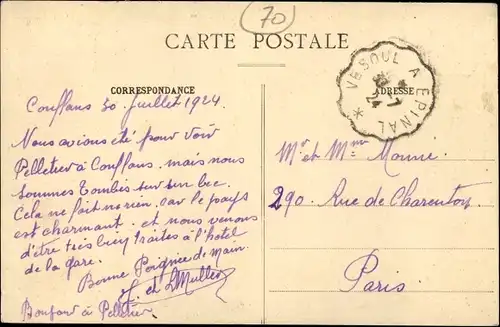 70
CARTE POSTALE
CORRESPONDANCE
ADRESSE
VESOUL A EPINAL
Conflans 30 Juillet 1924
Nous avions été pour voir
Pelletier à Conflans. mais nous
sommes tombés sur un bec.
Cela ne fait rien, car le pays
est charmant. et nous venons
d'être très bien traités à l'hôtel
de la gare.
Bonne Poignée de main.
J. et L Muller
Bonford à Pelletier
Mr et Mme Monné
290 Rue de Charenton
Paris